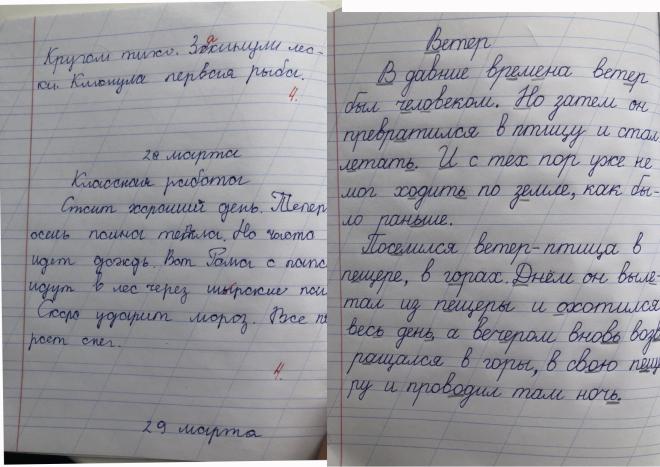 Кругом тихо. Закинули лес-
ки. Клюнула первая рыба.
4.
28 марта
Классная работа
Стоит хороший день. Тепер
осень полна тепла. Но часто
идет дождь. Вот Рома с папо
идут в лес через широкие пол
Скоро ударит мороз. Все п
роет снег.
4.
29 марта
Ветер
В давние времена ветер
был человеком. Но затем он
превратился в птицу и стал
летать. И с тех пор уже не
мог ходить по земле, как бы-
ло раньше.
Поселился ветер-птица в
пещере, в горах. Днём он выле-
тал из пещеры и охотился
весь день, а вечером вновь возв
ращался в горы, в свою пещ
ру и проводил там ночь.